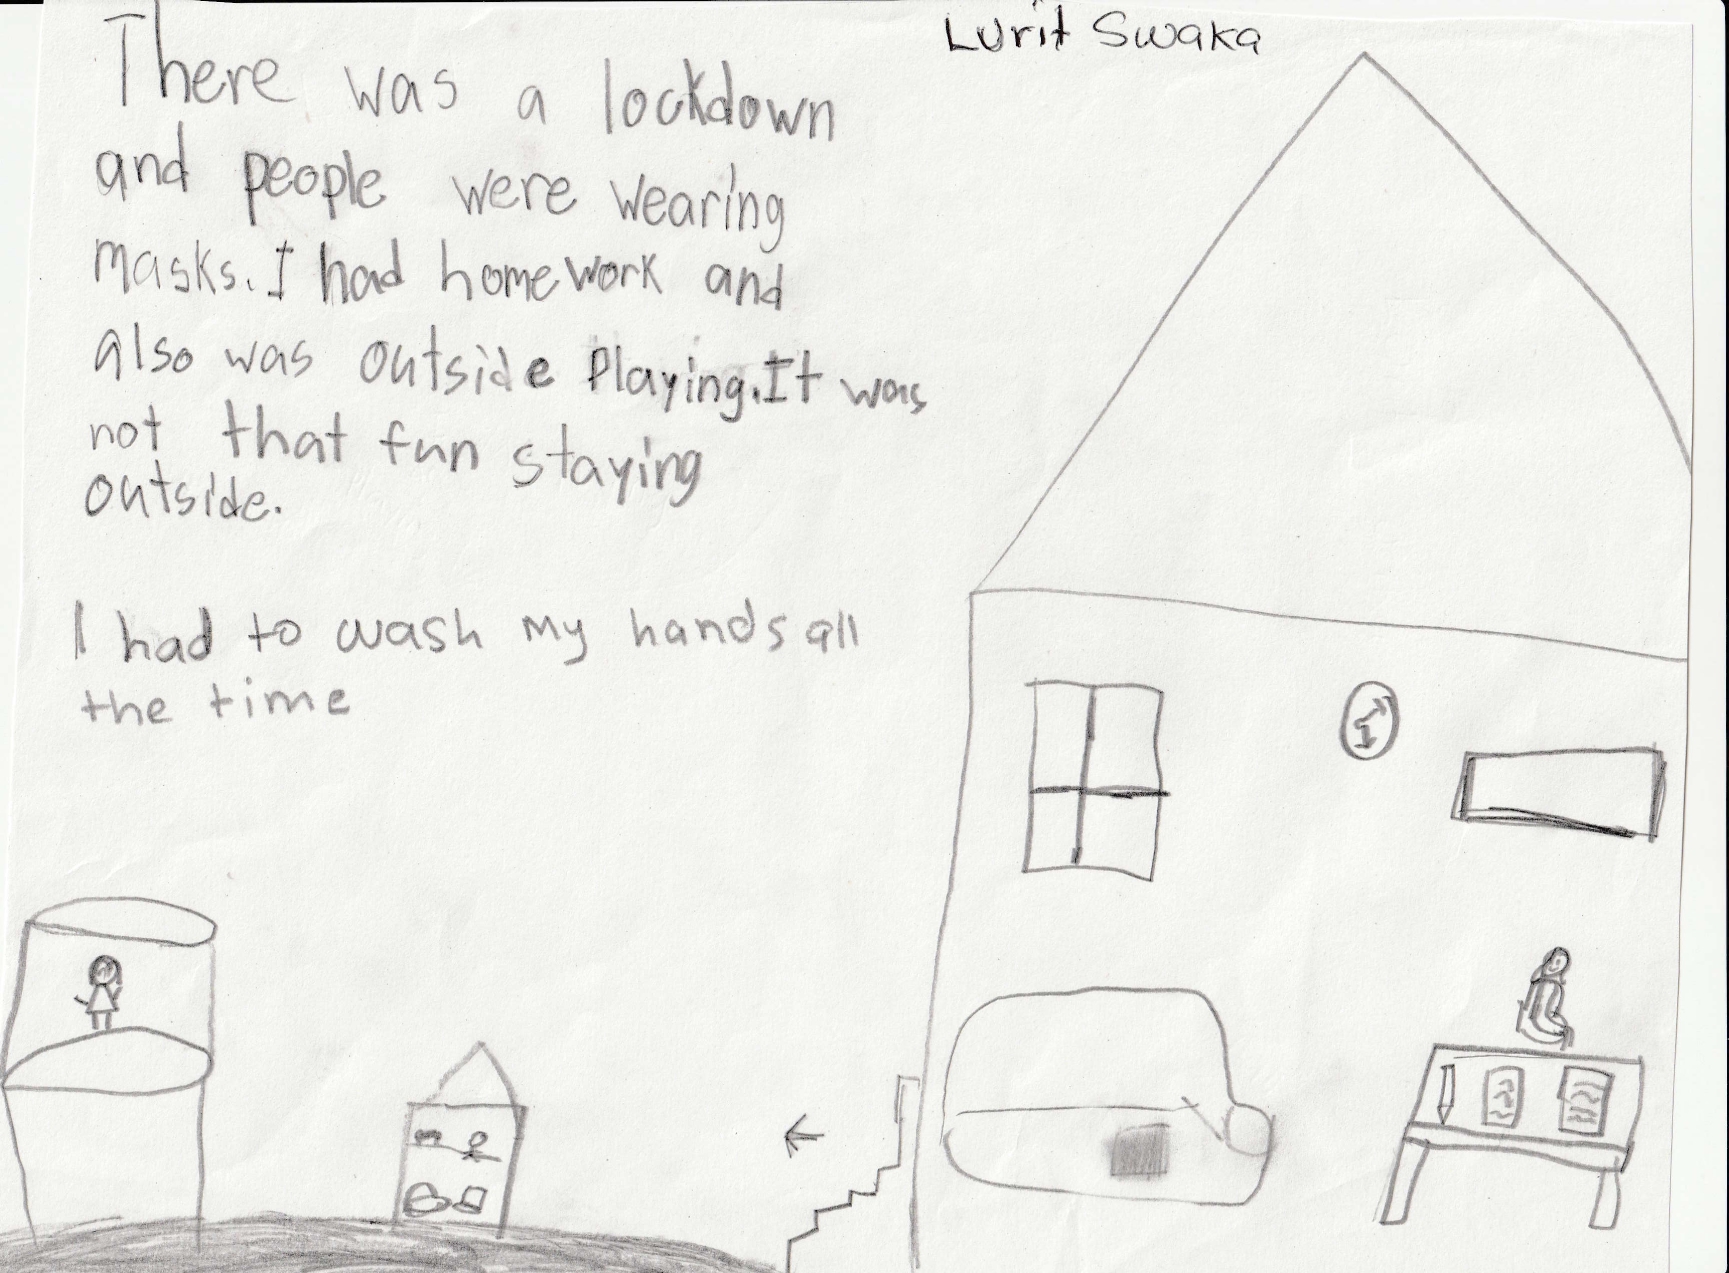 Lurit Swaka
There was a lockdown
and people were wearing
masks. I had homework and
also was outside Playing. It was
not that fun staying
outside.
I had to wash my hands all
the time